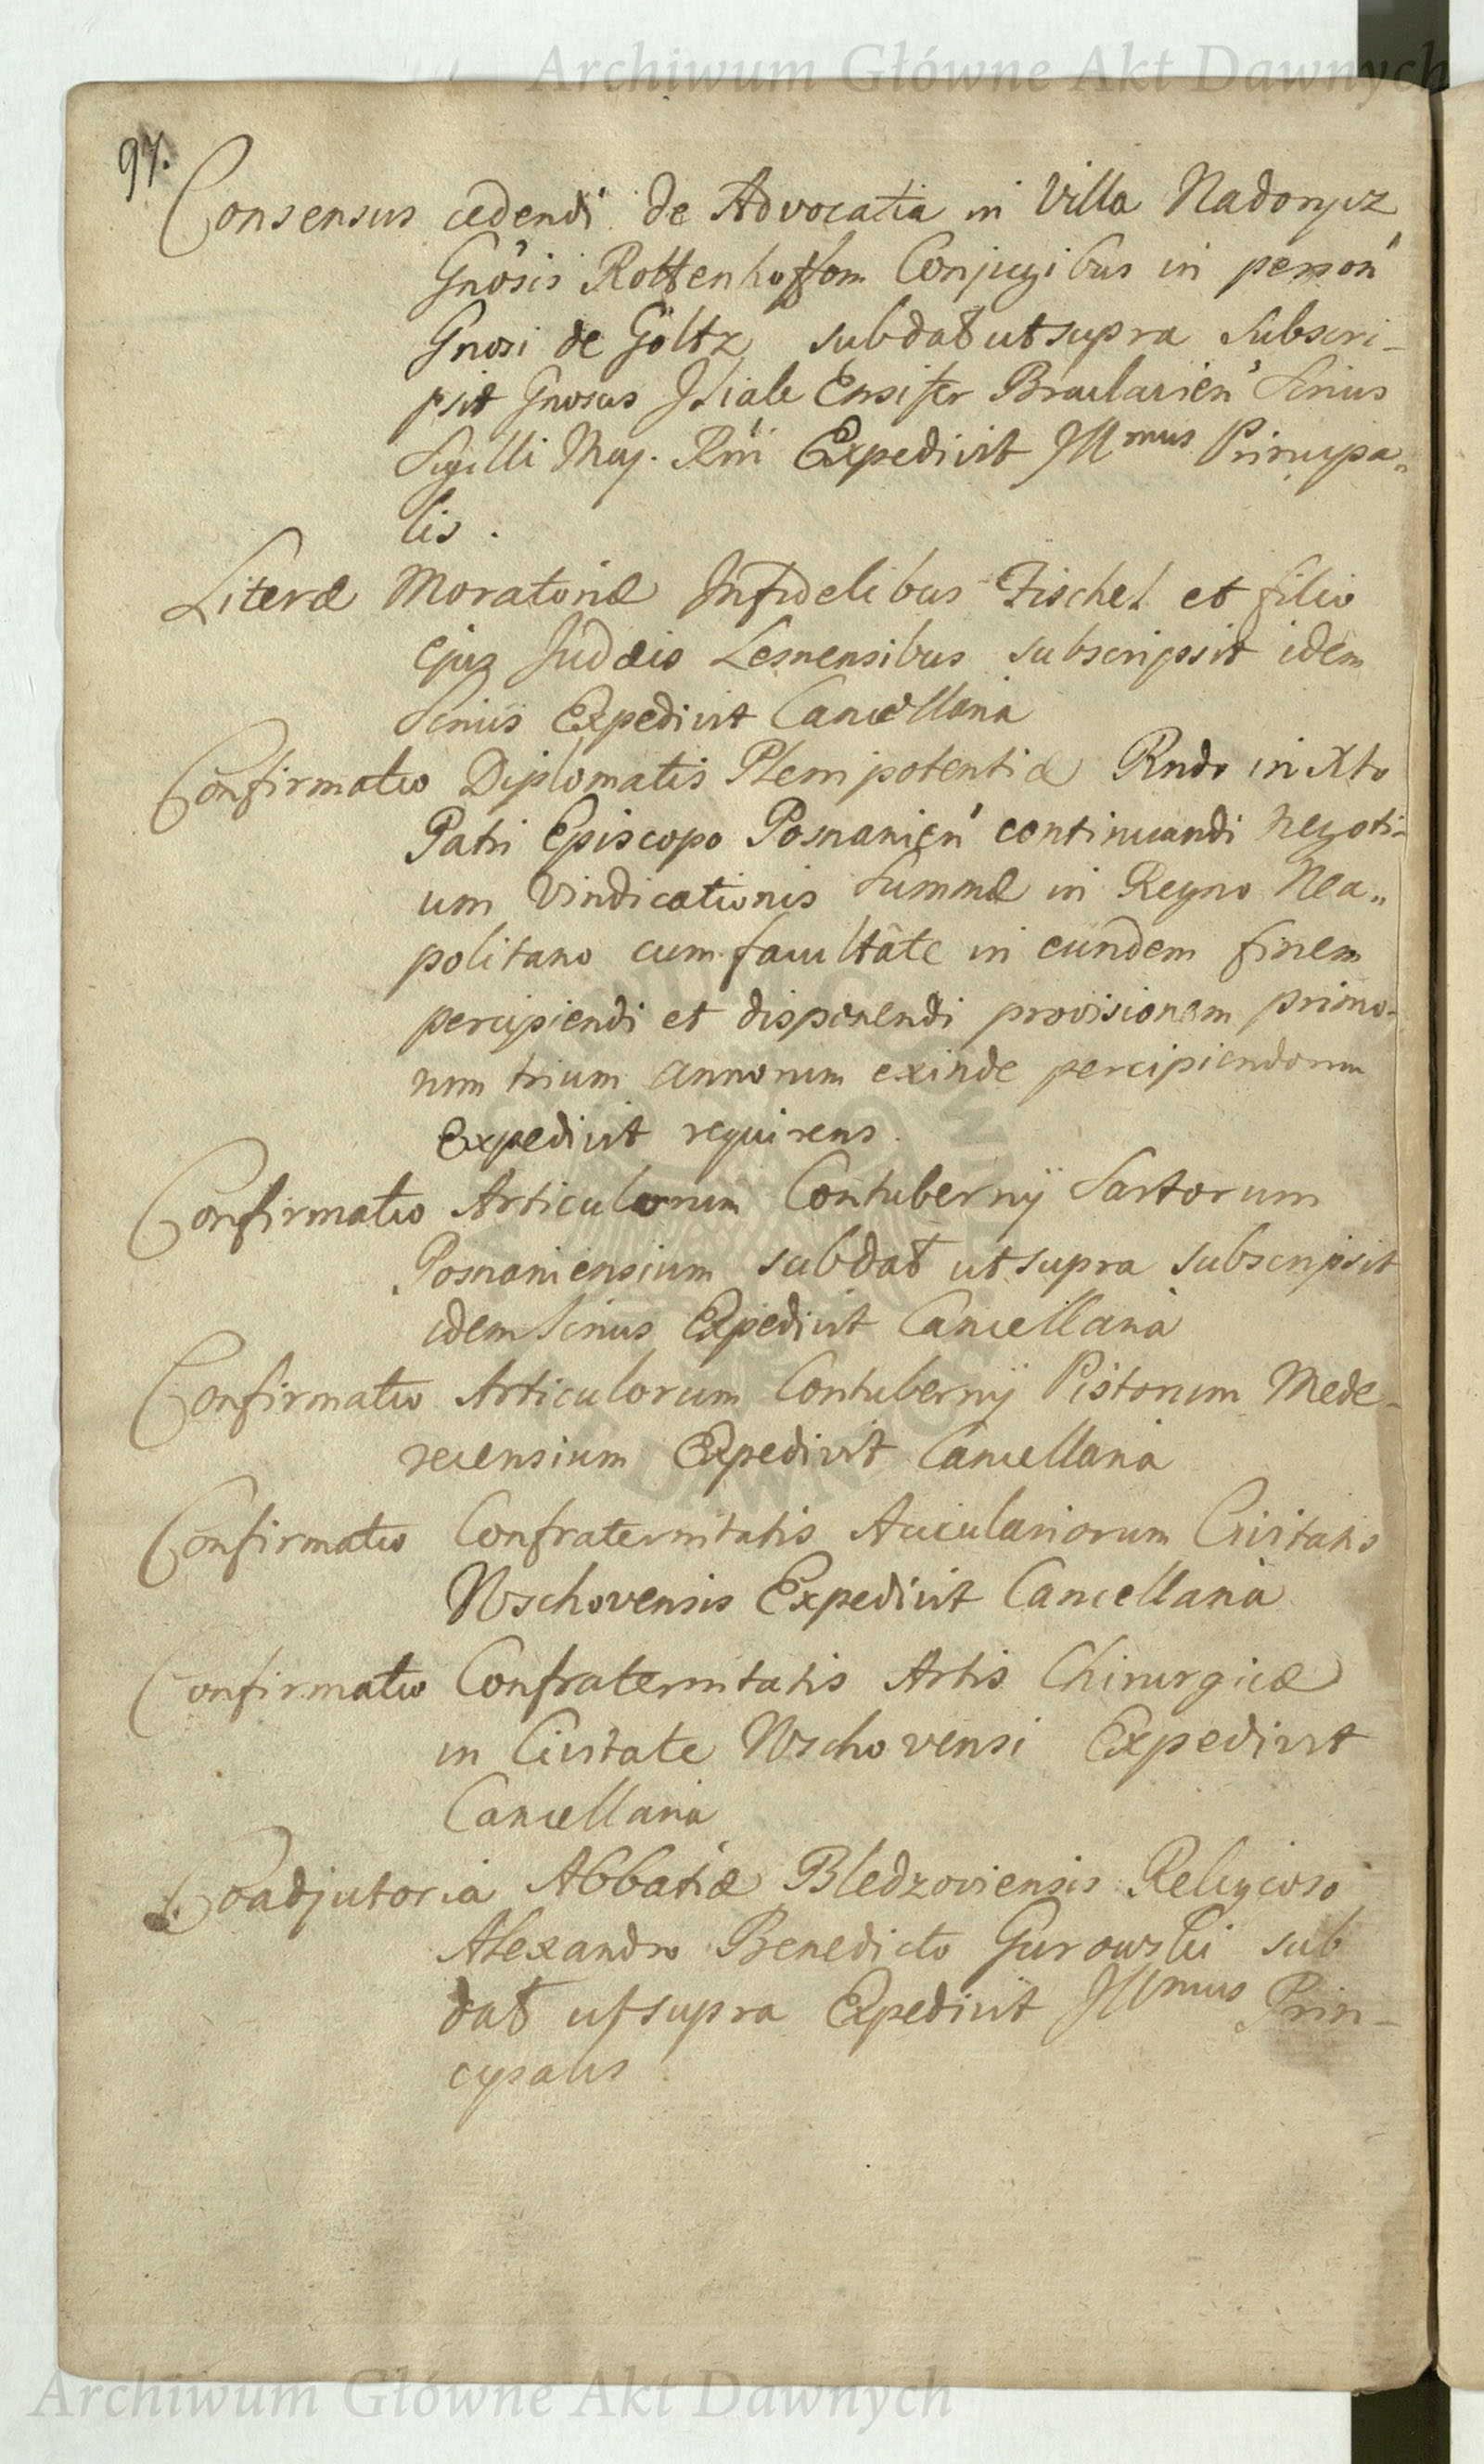 Archiwum Główne Akt Dawnych
97.
Consensus cedendi de Advocatia in Villa Nadorycz
Gnosis Rottenhoffom Conjugibus in person
Gnosi de Göltz sub dat ut supra Subscri-
psit Gnosus Ensifer Braclavien Srius
Sigilli Maj. Rni Expedivit Illmus Principa„
lis.
Literæ Moratoriæ Infidelibus Fischel et filio
ejus Judæis Lesnensibus subscripsit idem
Srius Expedivit Cancellaria
Confirmatio Diplomatis Plenipotentiæ Rndo in Xto
Patri Episcopo Posnanien continuandi negoti-
um Vindicationis Summæ in Regno Nea„
politano cum facultate in eundem finem
percipiendi et disponendi provisionem primo-
rum trium annorum exinde percipiendorum
Expedivit requirens.
Confirmatio Articulorum Contubernij Sartorum
Posnaniensium sub dat ut supra subscripsit
idem Srius Expedivit Cancellaria
Confirmatio Articulorum Contubernij Pistorum Mede-
recensium Expedivit Cancellaria
Confirmatio Confraternitatis Acculariorum Civitatis
Wschovensis Expedivit Cancellaria
Confirmatio Confraternitatis Artis Chirurgicæ
in Civitate Wschovensi Expedivit
Cancellaria
Coadjutoria Abbatiæ Bledzoviensis Religioso
Alexandro Benedicto Gurowski sub
dat ut supra Expedivit Illmus Prin-
cypalis
Archiwum Główne Akt Dawnych